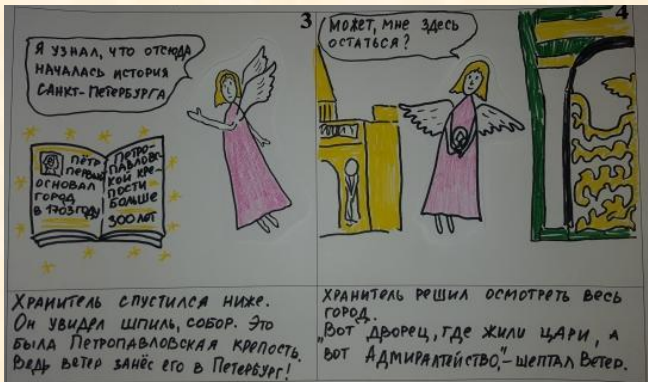 3
Я УЗНАЛ, ЧТО ОТСЮДА
НАЧАЛАСЬ ИСТОРИЯ
САНКТ-ПЕТЕРБУРГА
ПЁТР
ПЕРВЫЙ
ОСНОВАЛ
ГОРОД
В 1703 ГОДУ
ПЕТРО-
ПАВЛОВС-
КОЙ КРЕ-
ПОСТИ
БОЛЬШЕ
300 ЛЕТ
ХРАНИТЕЛЬ СПУСТИЛСЯ НИЖЕ.
ОН УВИДЕЛ ШПИЛЬ, СОБОР. ЭТО
БЫЛА ПЕТРОПАВЛОВСКАЯ КРЕПОСТЬ.
ВЕДЬ ВЕТЕР ЗАНЁС ЕГО В ПЕТЕРБУРГ!
4
МОЖЕТ, МНЕ ЗДЕСЬ
ОСТАТЬСЯ?
ХРАНИТЕЛЬ РЕШИЛ ОСМОТРЕТЬ ВЕСЬ
ГОРОД.
"ВОТ ДВОРЕЦ, ГДЕ ЖИЛИ ЦАРИ, А
ВОТ АДМИРАЛТЕЙСТВО,"-ШЕПТАЛ ВЕТЕР.